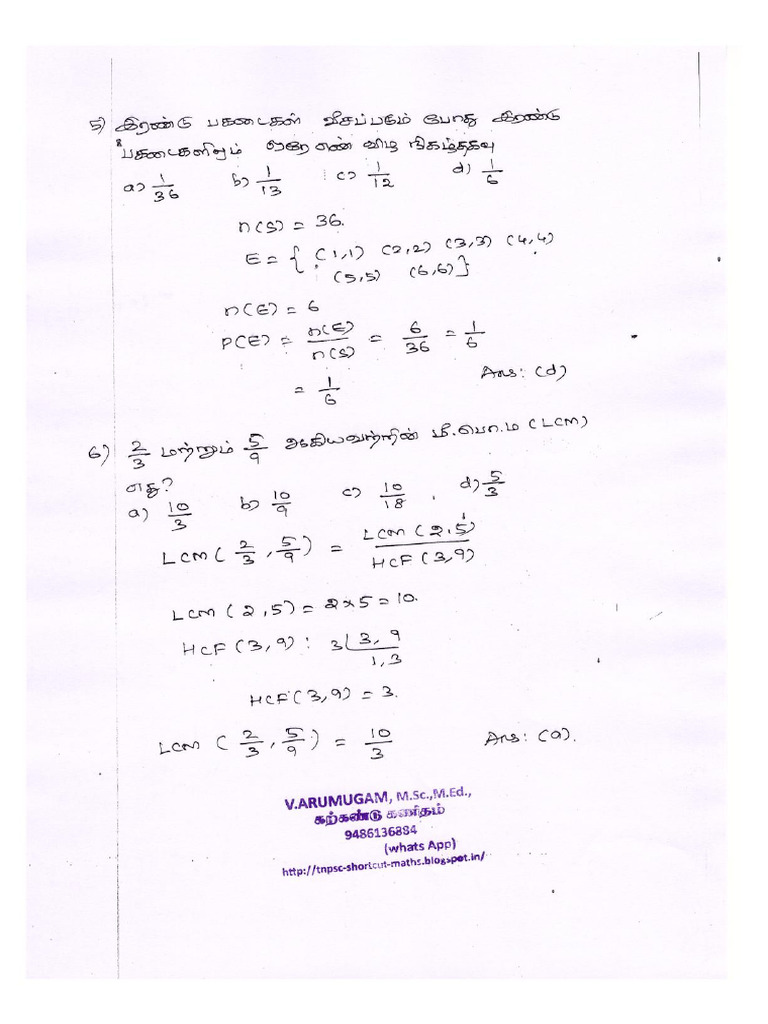 5) இரண்டு பகடைகள் வீசப்படும் போது இரண்டு
பகடைகளிலும் ஒரே எண் விழ நிகழ்தகவு
a) 1/36 b) 1/13 c) 1/12 d) 1/6
n(S) = 36.
E = { (1,1) (2,2) (3,3) (4,4)
(5,5) (6,6) }
n(E) = 6
P(E) = n(E)/n(S) = 6/36 = 1/6
= 1/6 Ans: (d)
6) 2/3 மற்றும் 5/9 ஆகியவற்றின் மீ.பொ.ம (LCM)
எது?
a) 10/3 b) 10/9 c) 10/18 d) 5/3
LCM ( 2/3 , 5/9 ) = LCM (2,5)/HCF (3,9)
LCM (2,5) = 2×5 = 10.
HCF (3,9) : 3 | 3, 9
1, 3
HCF (3,9) = 3.
LCM ( 2/3 , 5/9 ) = 10/3 Ans: (a).
V.ARUMUGAM, M.Sc.,M.Ed.,
கற்கண்டு கணிதம்
9486136884
(whats App)
http://tnpsc-shortcut-maths.blogspot.in/